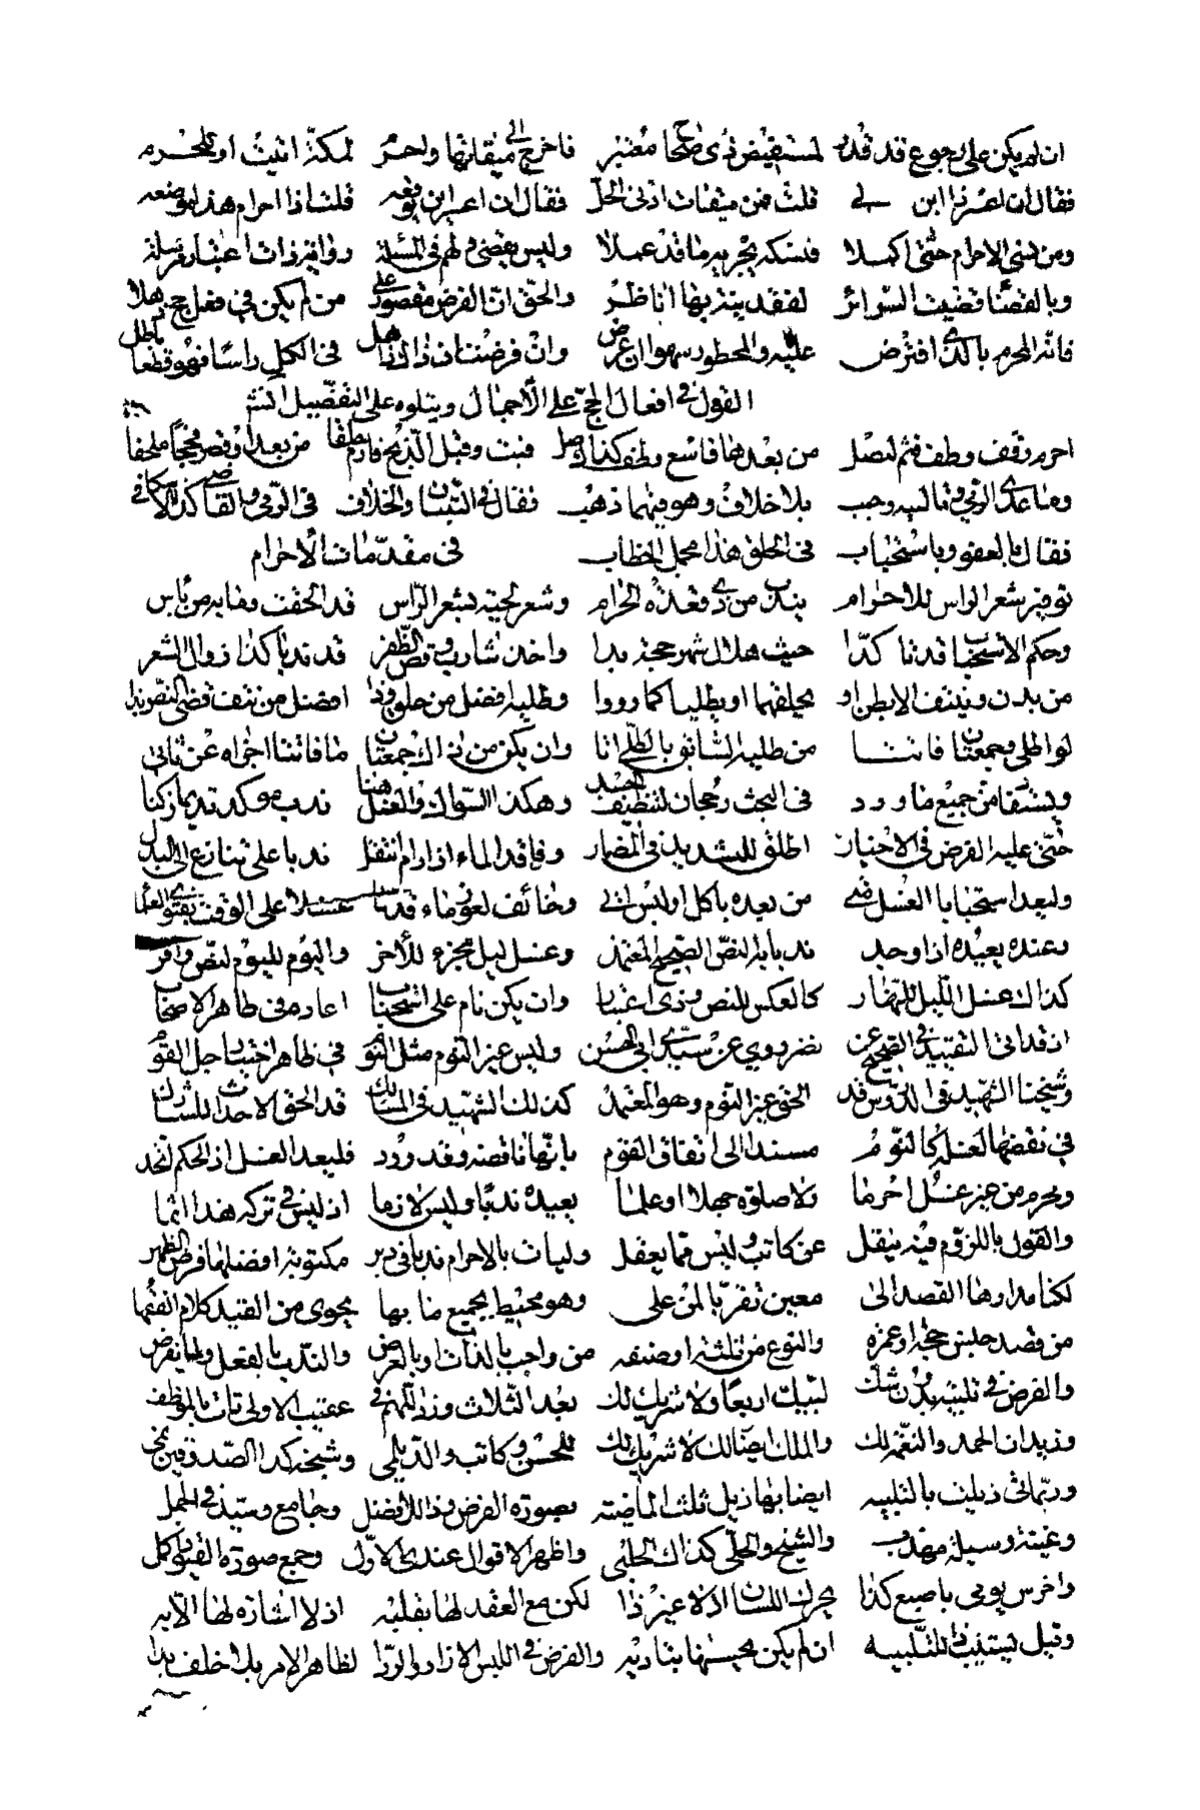 ان لم يكن على رجوع قد قدر لمستفيض ذى صحاح معتبر فاخرج الى ميقاتها واحر لمكة اتيت او للحرم
فقال ان اعزز ابن لى قلت فمن ميقات ادنى الحل فقال ان اعبر ابن قلت اذا احرام هذا موضعه
ومن نسى الاحرام حتى اكملا فنسكه يجزيه ما قد عملا وليس بعضى لهم فى المسئلة روايتى ذات اعتبار مرسلة
وبالقضا قضيت السرائر لفقد يتذبها اناظر والحق ان الفرض مقصود على من لم يكن فى فعل حج جهلا
فانه المحرم بالذى افترض عليه والمحظور سهوا ان عرض وان فرضنا ان ذا الذاهل فى الكل راسا فهو قطعا باطل
القول فى افعال الحج على الاجمال ويتلوه على التفصيل
احرم وقف وطف فثم لتصل من بعدها فاسع وطف كذا وصل فبت وقبل الذبح فارم مطلقا من بعد او قصر محجا ملحقا
وما عدى الرمى وتالييه وجب بلا خلاف وهو فيهما ذهب فقال فى التبيان والخلاف فى الرمى والقاضى كذا الاسكافى
فقال بالعفو وباستحباب فى الحلق هذا مجمل الخطاب فى مقدمات الاحرام
توفير شعر الراس للاحرام يندب من ذى قعدة الحرام وشعر لحيته بشعر الراس قد الحقت وما به من باس
وحكم الاستحباب قد تاكدا حيث هلال شهر حجة بدا واخذ شارب وقص الظفر قد ندبا كذا زوال الشعر
من بدن وينتف الابطين او يحلقهما او يطليا كما رووا وطليه افضل من حلق وذا افضل من نتف
لو اطلى وجمعتان فاتتا من طليه السابق بالطلى اتى وان يكن من ذاك جمعتان ما فاتتا اجزاه عن ثانى
ويستفاد من جميع ما ورد فى البحث رجحان لتنظيف الجسد وهكذا السواك والغسل هنا ندب موكد
حتى عليه الفرض فى الاختيار اطلق للتشديد فى المضمار وفاقد الماء اذا رام انتقل ندبا على تنازع الى البدل
وليعد استحبابا الغسل متى من بعده ياكل او لبس اتى وخائف لعوز ماء قدما غسلا على الوقت بفتوى العلما
وعنده يعيده اذا وجد ندبا بالنص الصحيح المعتمد وغسل ليل مجزء للأخر واليوم لليوم لنص وافر
كذاك غسل الليل للنهار كالعكس للنص وذى اعتبار وان يكن نام على استحباب اعاده فى ظاهر الاصحاب
اذ قد اتى التقييد فى الصحيح عن نضر روى عن سيدى ابى الحسن وليس غير النوم مثل النوم فى ظاهر اختيار جل القوم
وشيخنا الشهيد فى الدروس قد الحق غير النوم وهو المعتمد كذلك الشهيد فى المسالك قد الحق الاحداث للمشارك
فى نقضها لغسله كالنوم مسندا الى اتفاق القوم بانها ناقضة وقد ورد فليعد الغسل اذ الحكم اتحد
ومحرم من غير غسل احرما ولا صلوة جهلا او علما يعيده ندبا وليس لازما اذ ليس فى تركه هذا اثما
والقول باللزوم فيه ينقل عن كاتب وليس مما يعقل وليات بالاحرام ندبا فى دبر مكتوبة افضلها فرض الظهر
لكنما مدارها القصد الى معين تقربا لمن على وهو محيط بجميع ما بها يحوى من القيد كلام الفقها
من قصد جنس حجة او عمرة والنوع من ثلثة او صفة من واجب بالذات او بالعرض والندب بالفعل
والفرض فى تلبية بدون شك لبيك اربعا ولا شريك لك بعد الثلاث وزد اللهم فى عقيب الاولى تات بالموظف
وزيد ان الحمد والنعمة لك والملك ايضا لك لا شريك لك للحسن وكاتب والديلمى وشيخه كذا الصدوقين
وربما ذيلت بالتلبية ايضا بها ذيل ثلث الماضية بصورة الفرض وذا للأفضل وجامع وسيد فى الجمل
وغنية وسيلة مهذب والشيخ والحلى كذاك الحلبى واظهر الاقوال عندى الاول وجمع صورة الفتيا اكمل
واخرس يومى باصبع كذا يحرك اللسان اولا غير ذا لكن مع العقد لها بقلبه اذ لا اشارة لها الا به
وقيل يستنيب للتلبية ان لم يكن يحسنها بتادية والفرض فى اللبس الازار والردا لظاهر الامر بلا خلف بدا